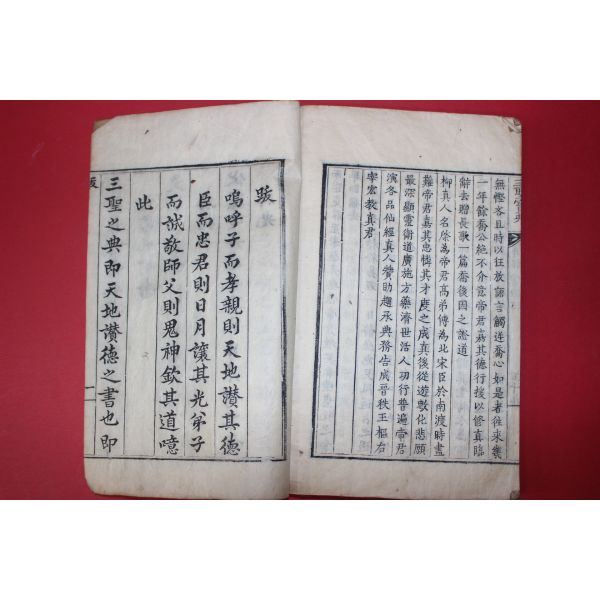 無慳吝且時以狂放謔言觸逆喬心如是者往來幾
一年餘喬公絶不介意帝君嘉其德行授以修真臨
辭去贈長歌一篇喬後因之證道
柳真人名棨為帝君高弟傳為北宋臣於南渡時盡
難帝君嘉其忠憐其才度之成真後從遊敷化悲願
最深顯靈衛道廣施方藥濟世活人功行普遍帝君
演各品仙經真人贊助趨承典務告成晉秩玉樞右
宰宏教真君
跋
嗚呼子而孝親則天地讃其德
臣而忠君則日月讓其光弟子
而誠敬師父則鬼神欽其道噫
此
三聖之典即天地讃德之書也即
跋
一